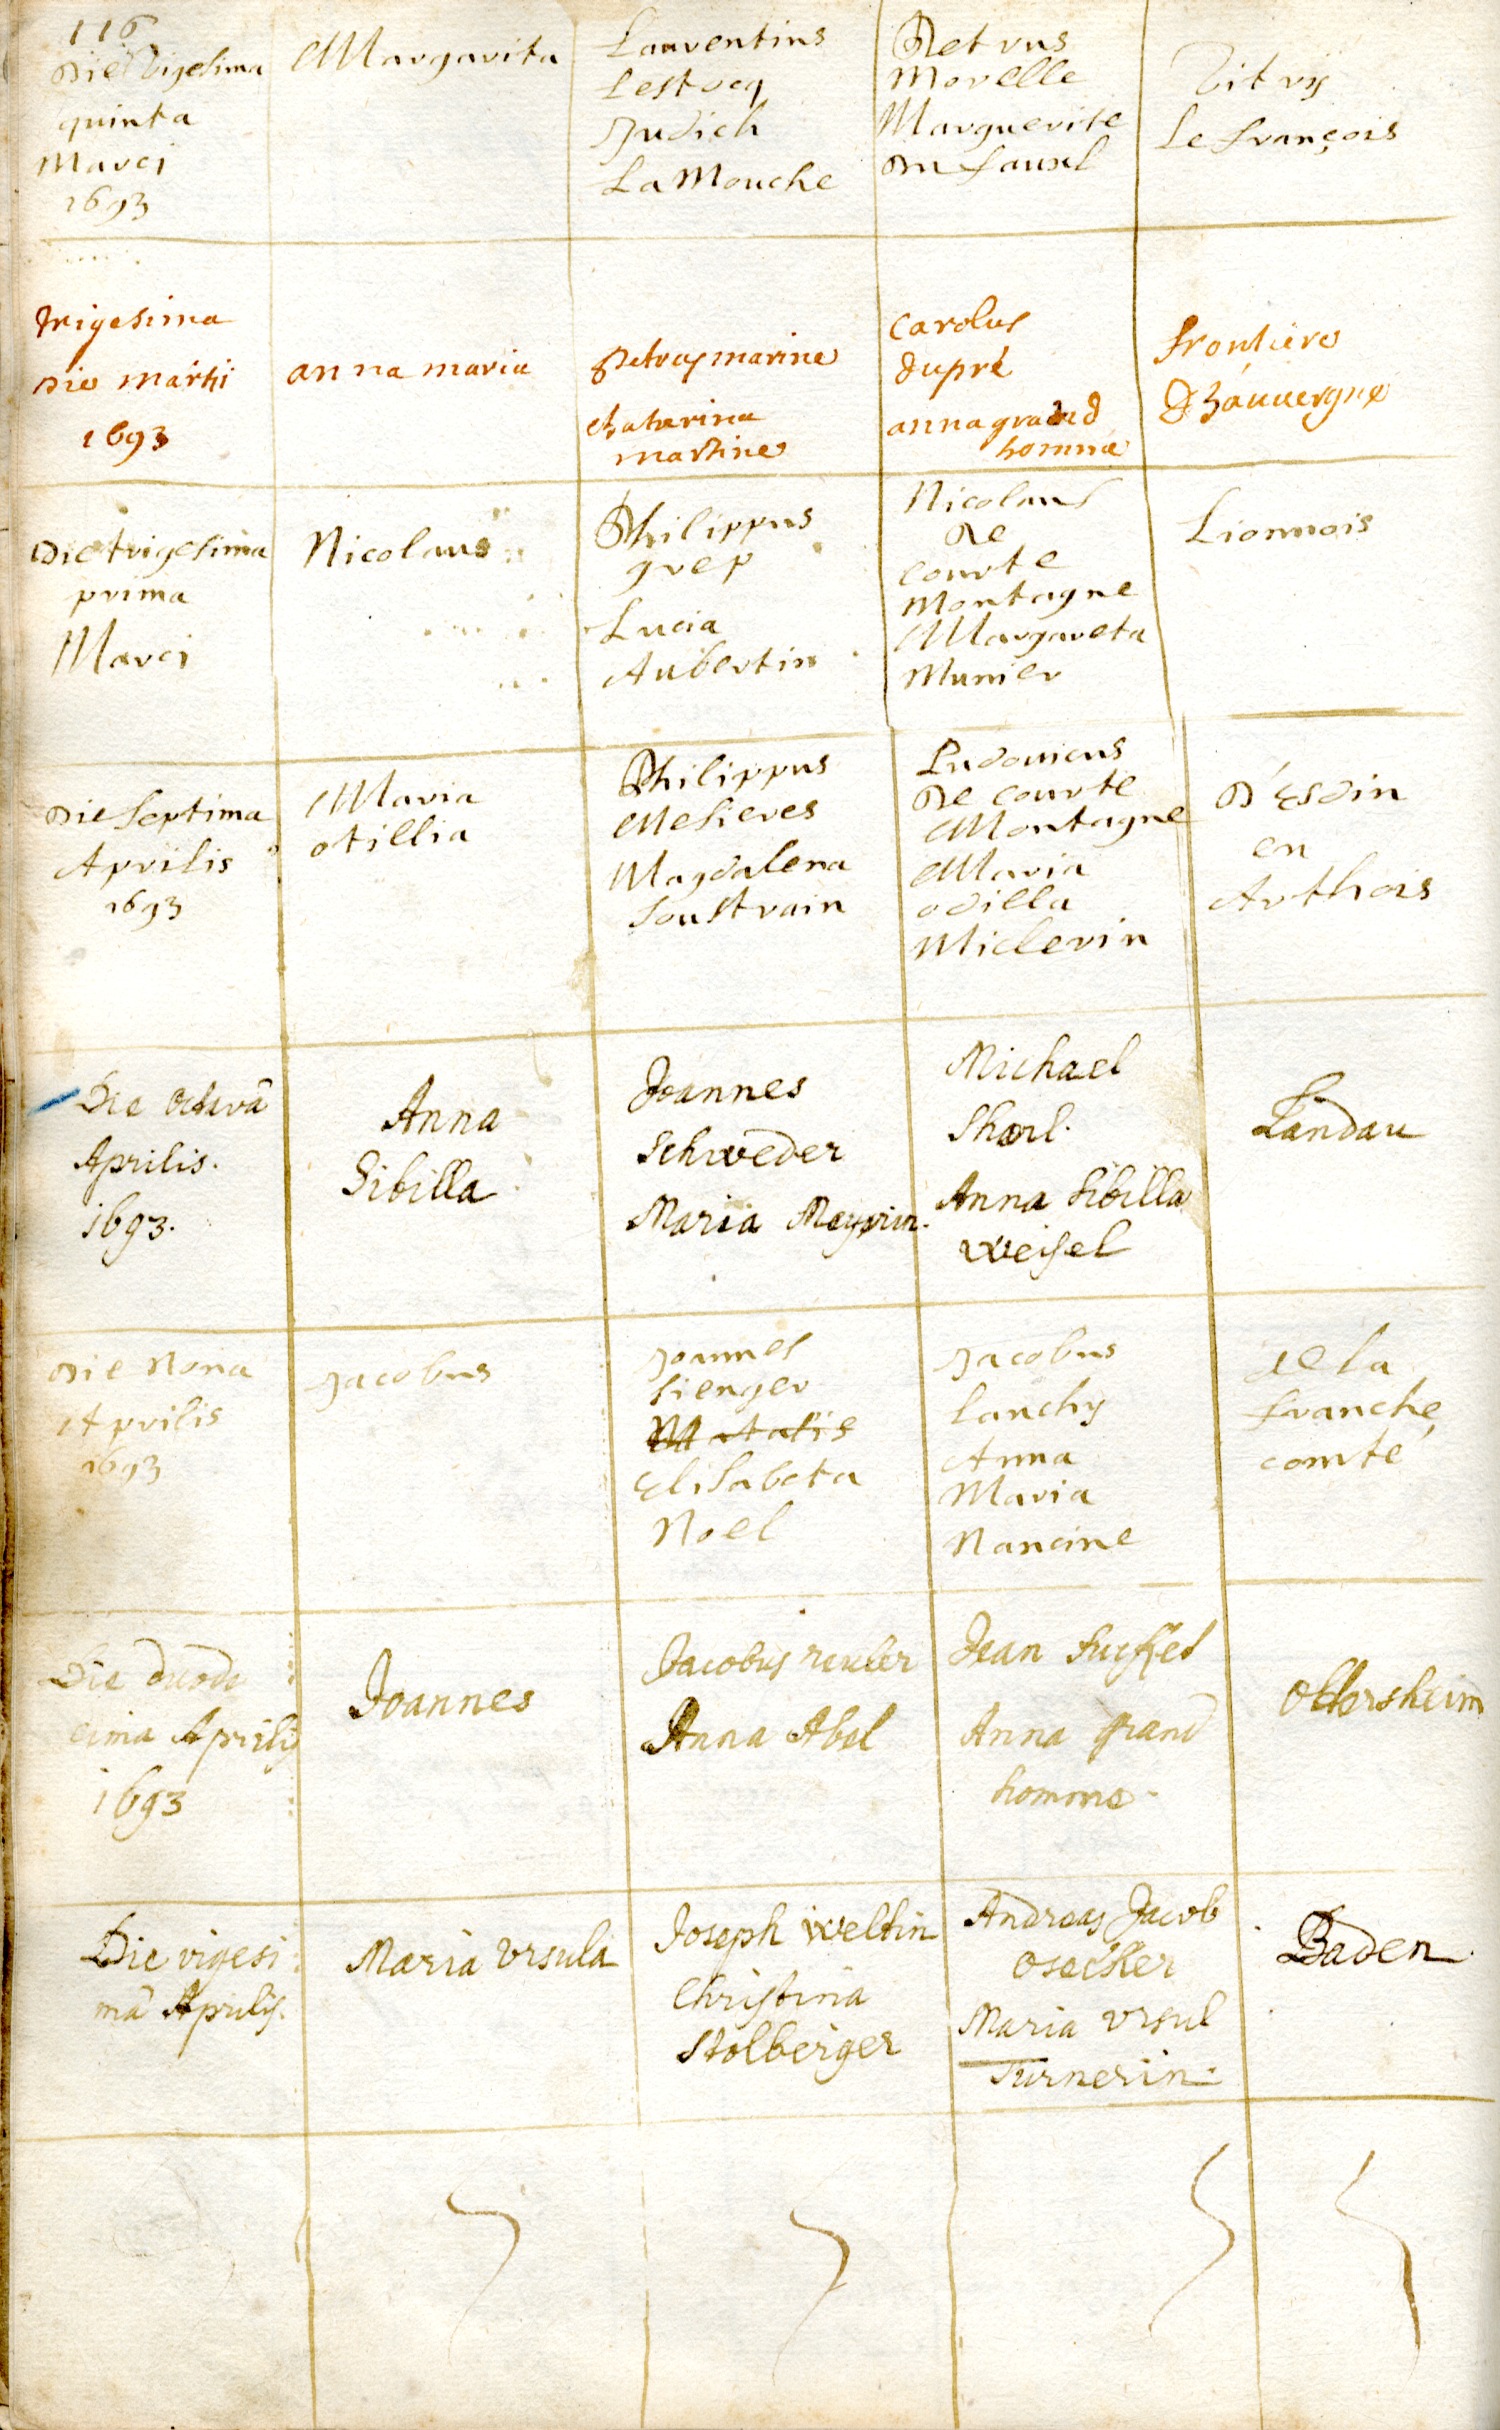 116
Die Vigesima
quinta
Marci
1693
Margarita
Laurentius
Lestocq
Judich
La Mouche
Petrus
Morelle
Marguerite
Du faual
Vitrÿ
Le françois
trigesima
die martii
1693
anna maria
petrus marine
chatarina
martine
carolus
dupré
anna grand
homme
frontiere
D'auuergne
Die trigesima
prima
Marci
Nicolaus
Philippus
grep
Lucia
Aubertin
Nicolaus
De
courte
Montagne
Margareta
Munier
Lionnois
Die Septima
Aprilis
1693
Maria
otillia
Philippus
Mesieres
Magdalena
Soustrain
Ludouicus
De courte
Montagne
Maria
odilla
Miclerin
D'Esdin
en
Arthois
Die octavâ
Aprilis.
1693.
Anna
Sibilla
Joannes
Schweder
Maria Meyerin.
Michael
Sharl.
Anna Sibilla
Weisel
Landau
Die Nona
Aprilis
1693
Jacobus
Joannes
Sienger
Elisabeta
Noel
Jacobus
Lanchy
Anna
Maria
Nancine
de la
franche
comté
Die duode
cima Aprilis
1693
Joannes
Jacobus reuler
Anna Abel
Jean
Anna grand
homme
Ottersheim
Die vigesi
mâ Aprilis.
Maria Vrsula
Joseph Weltin
Christina
Stolberger
Andreas Jacob
Osecker
Maria Vrsul
Turnerin.
Baden